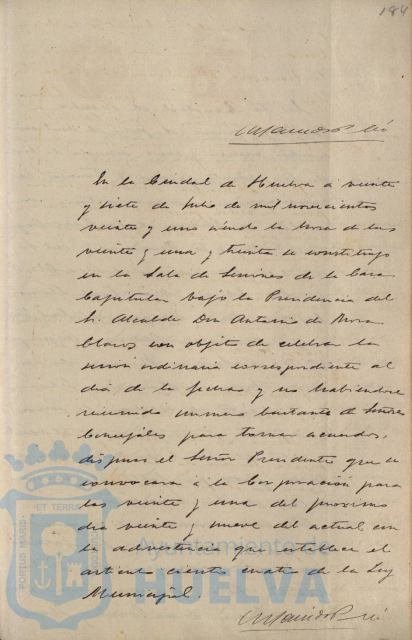 184
En la Ciudad de Huelva á veinte
y siete de Julio de mil novecientos
veinte y uno siendo la hora de las
veinte y una y treinta se constituyó
en la Sala de Sesiones de la Casa
Capitular bajo la Presidencia del
Sr. Alcalde Don Antonio de Mora
Claros con objeto de celebrar la
sesión ordinaria correspondiente al
dia de la fecha y no habiendose
reunido número bastante de Señores
Concejales para tomar acuerdos,
dispuso el Señor Presidente que se
convocara a la Corporación para
las veinte y una del proximo
dia veinte y nueve del actual con
la advertencia que establece el
articulo ciento cuatro de la Ley
Municipal.
PORTUS MARIS
ET TERRAE
Ayuntamiento de
HUELVA